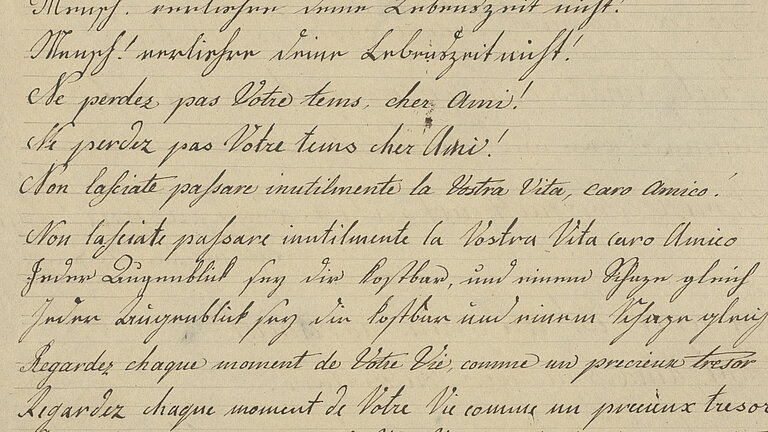 Mensch! verliehre deine Lebenszeit nicht!
Mensch! verliehre deine Lebenszeit nicht!
Ne perdez pas Votre tems, cher Ami!
Ne perdez pas Votre tems cher Ami!
Non lasciate passare inutilmente la Vostra Vita, caro Amico!
Non lasciate passare inutilmente la Vostra Vita caro Amico
Jeder Augenblick sey dir kostbar, und einem Schaze gleich
Jeder Augenblick sey dir kostbar und einem Schaze gleich
Regardez chaque moment de Votre Vie, comme un precieux tresor
Regardez chaque moment de Votre Vie comme un precieux tresor